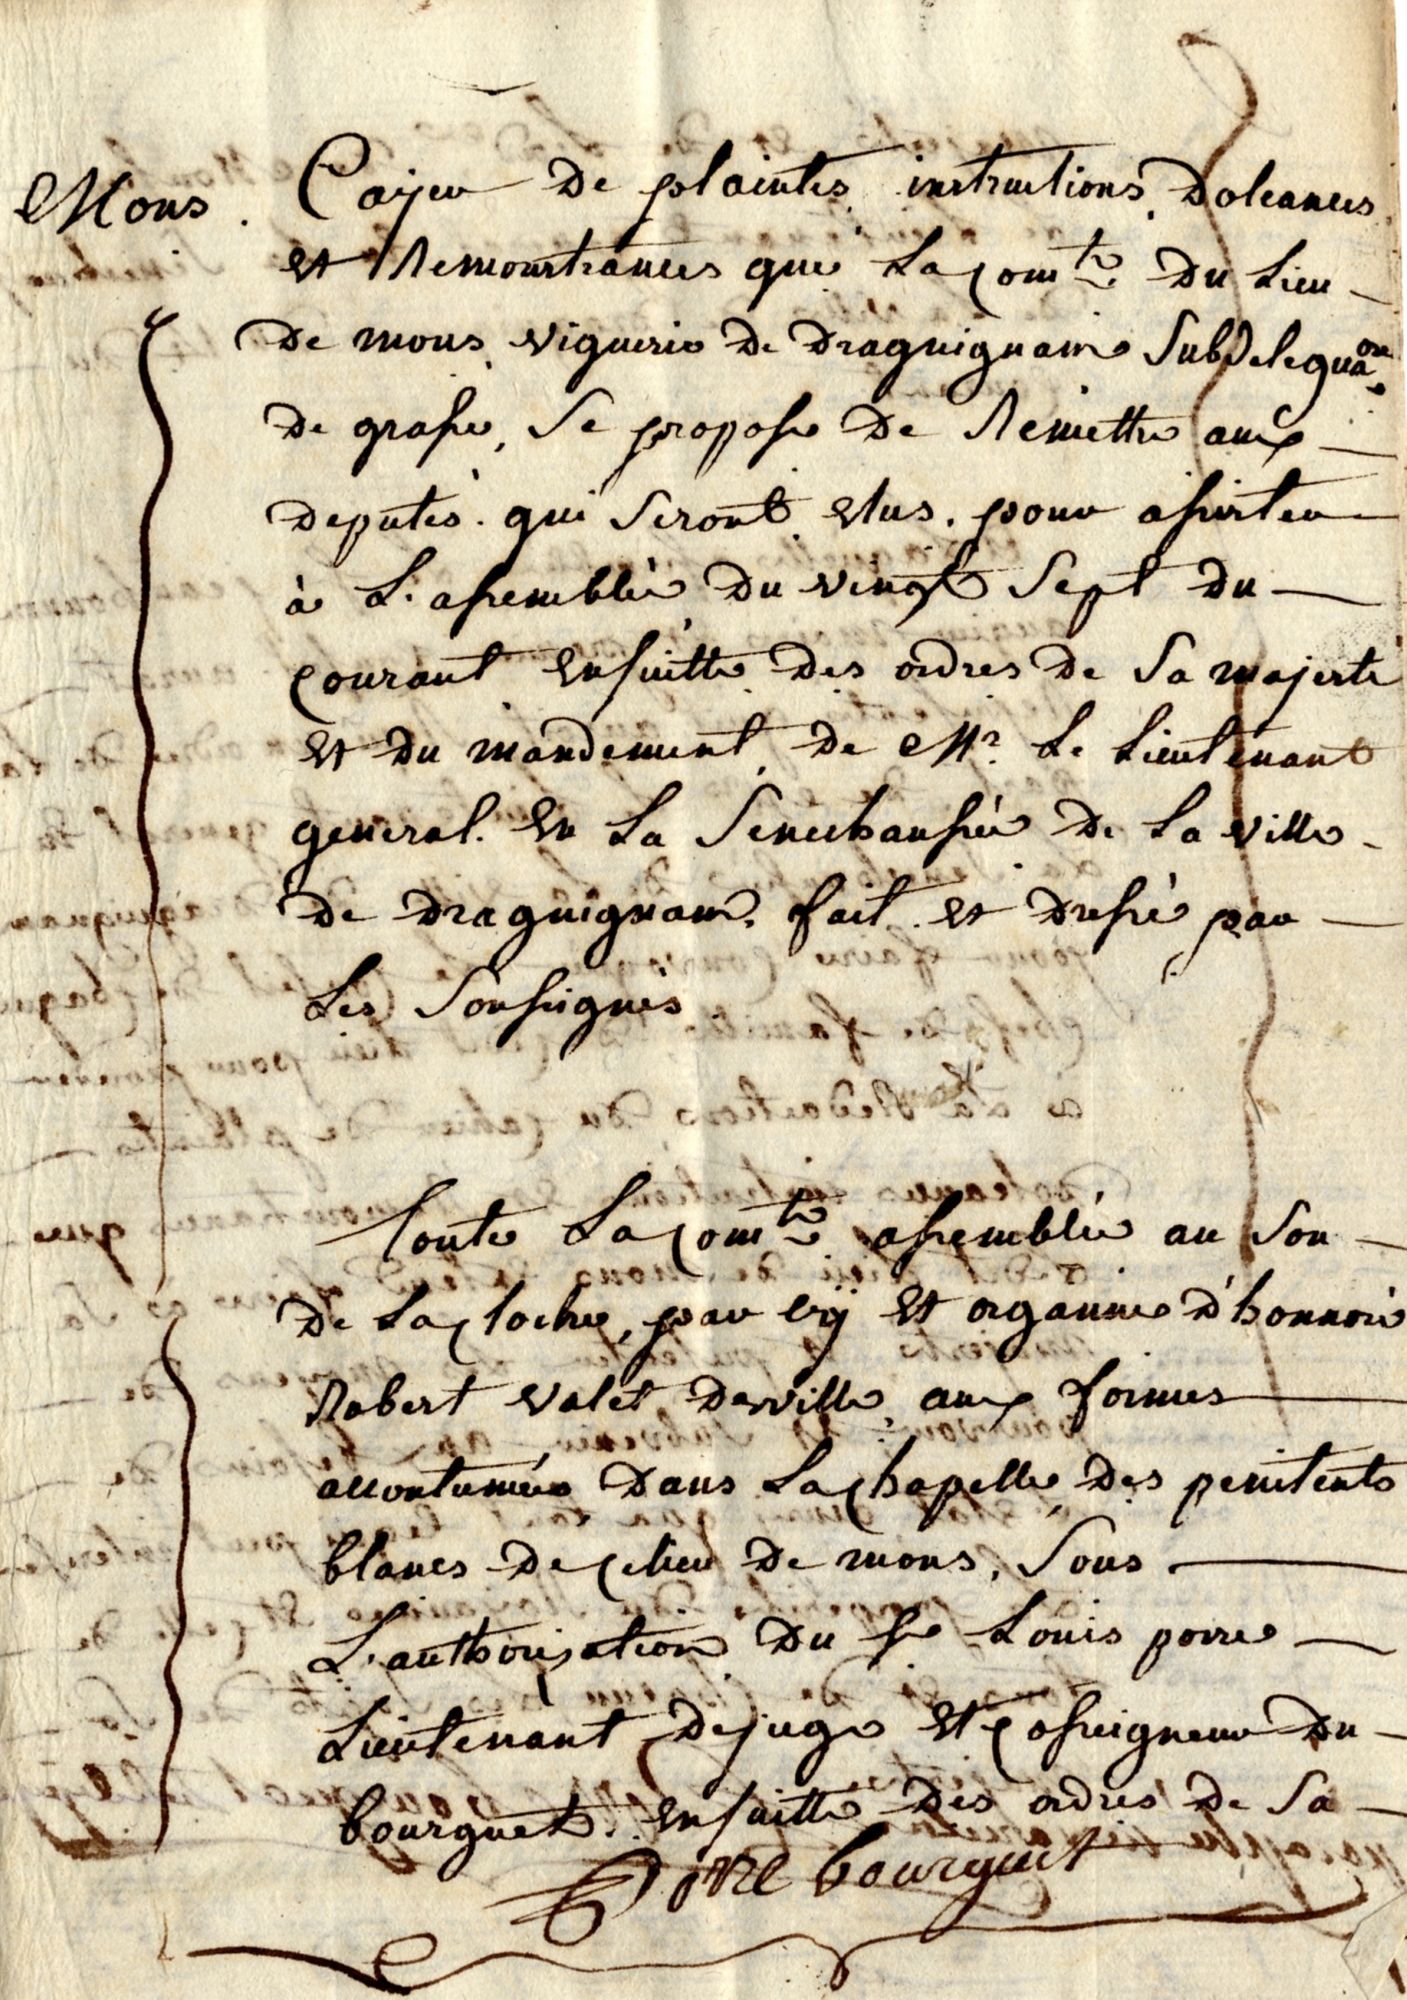 Mons.
Cayeu de plaintes, instructions, Doleances
et Remonstrances que La Com.té Du Lieu
De mons, viguerie de Draguignain Subdelegua.on
De grasse, Se propose De Remettre aux
Deputés qui Seront elus, pour assister
à L'assemblée Du vingt Sept Du
Courant ensuitte Des ordres De Sa majesté
et Du mandement, De Mr. Le Lieutenant
general en La Senechaussée De La ville
De Draguignan, fait et Dressé par
Les Soussignés
Toute La Com.té assemblée au Son
De La Cloche, par cry et organne D'honnoré
Robert valet De ville, aux formes
accoutumées Dans La Chapelle Des penitents
blancs De Ce lieu De mons, Sous
L'authorisation Du Sr Louis poire
Lieutenant De juge et Cosseigneur Du
bourguet, ensuitte Des ordres De Sa
bourguet